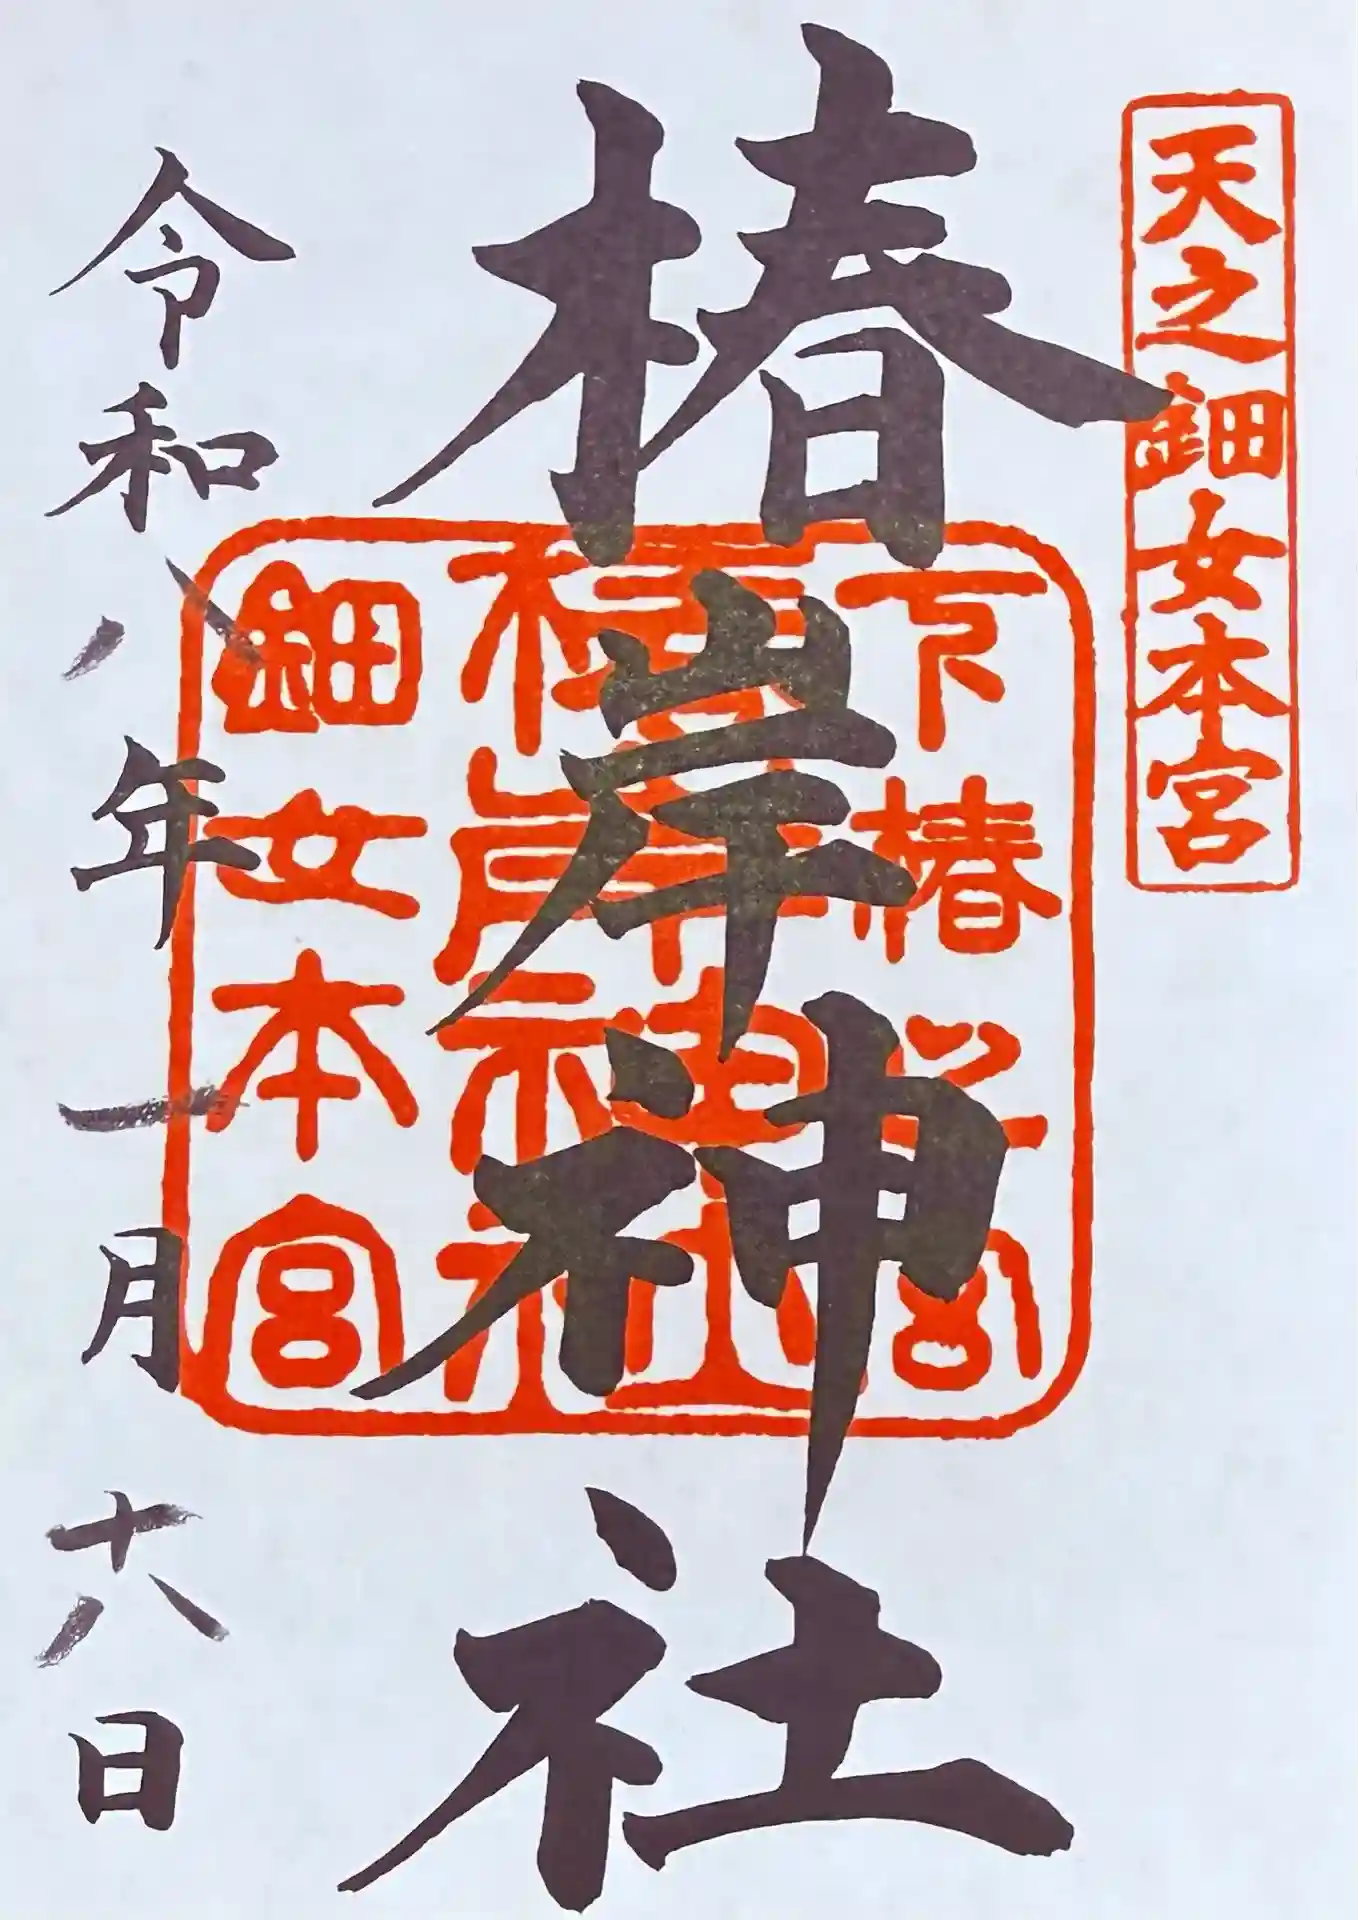 天之鈿女本宮
椿岸神社
下椿
宮
椿岸神社
鈿女本宮
令和八年一月十八日